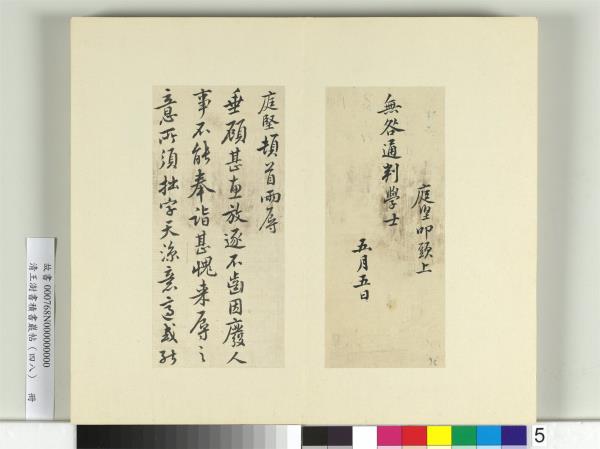 庭堅叩頭上
無咎通判學士
五月五日
庭堅頓首兩辱
垂顧甚惠放逐不齒因廢人
事不能奉詣甚愧来辱之
意所須拙字天涼意適或能
故書 000768N000000000
清王澍書積書巖帖(四八) 冊
5